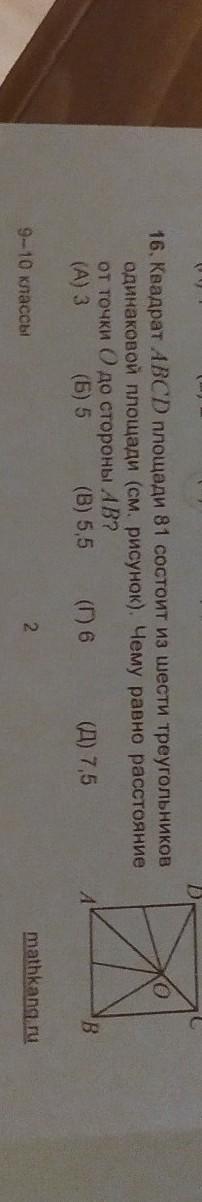 16. Квадрат ABCD площади 81 состоит из шести треугольников
одинаковой площади (см. рисунок). Чему равно расстояние
от точки O до стороны AB?
(А) 3 (Б) 5 (В) 5,5 (Г) 6 (Д) 7,5
D C
O
A B
9–10 классы 2 mathkang.ru